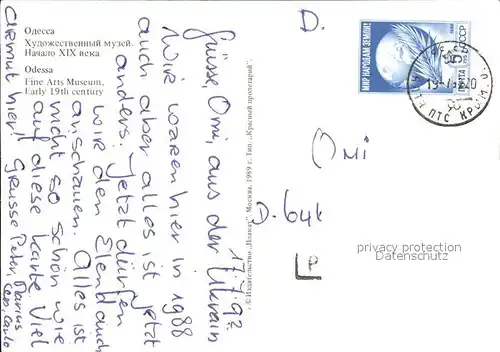 Одесса
Художественный музей.
Начало XIX века
Odessa
Fine Arts Museum,
Early 19th century
17.7.92
Grüsse, Omi, aus der Ukrain
Wir waren hier in 1988
auch aber alles ist jetzt
anders. Jetzt dürfen
wir den Elend auch
anschauen. Alles ist
nicht so schön wie
auf diese Karte. Viel
armut hier! Grüsse Peter Marius
Carlo
© Издательство „Плакат", Москва. 1989 г. Тип. „Красный пролетарий".
D.
МИР НАРОДАМ ЗЕМЛИ!
5
ПОЧТА СССР
ПТС
Omi
D. 64
privacy protection
Datenschutz